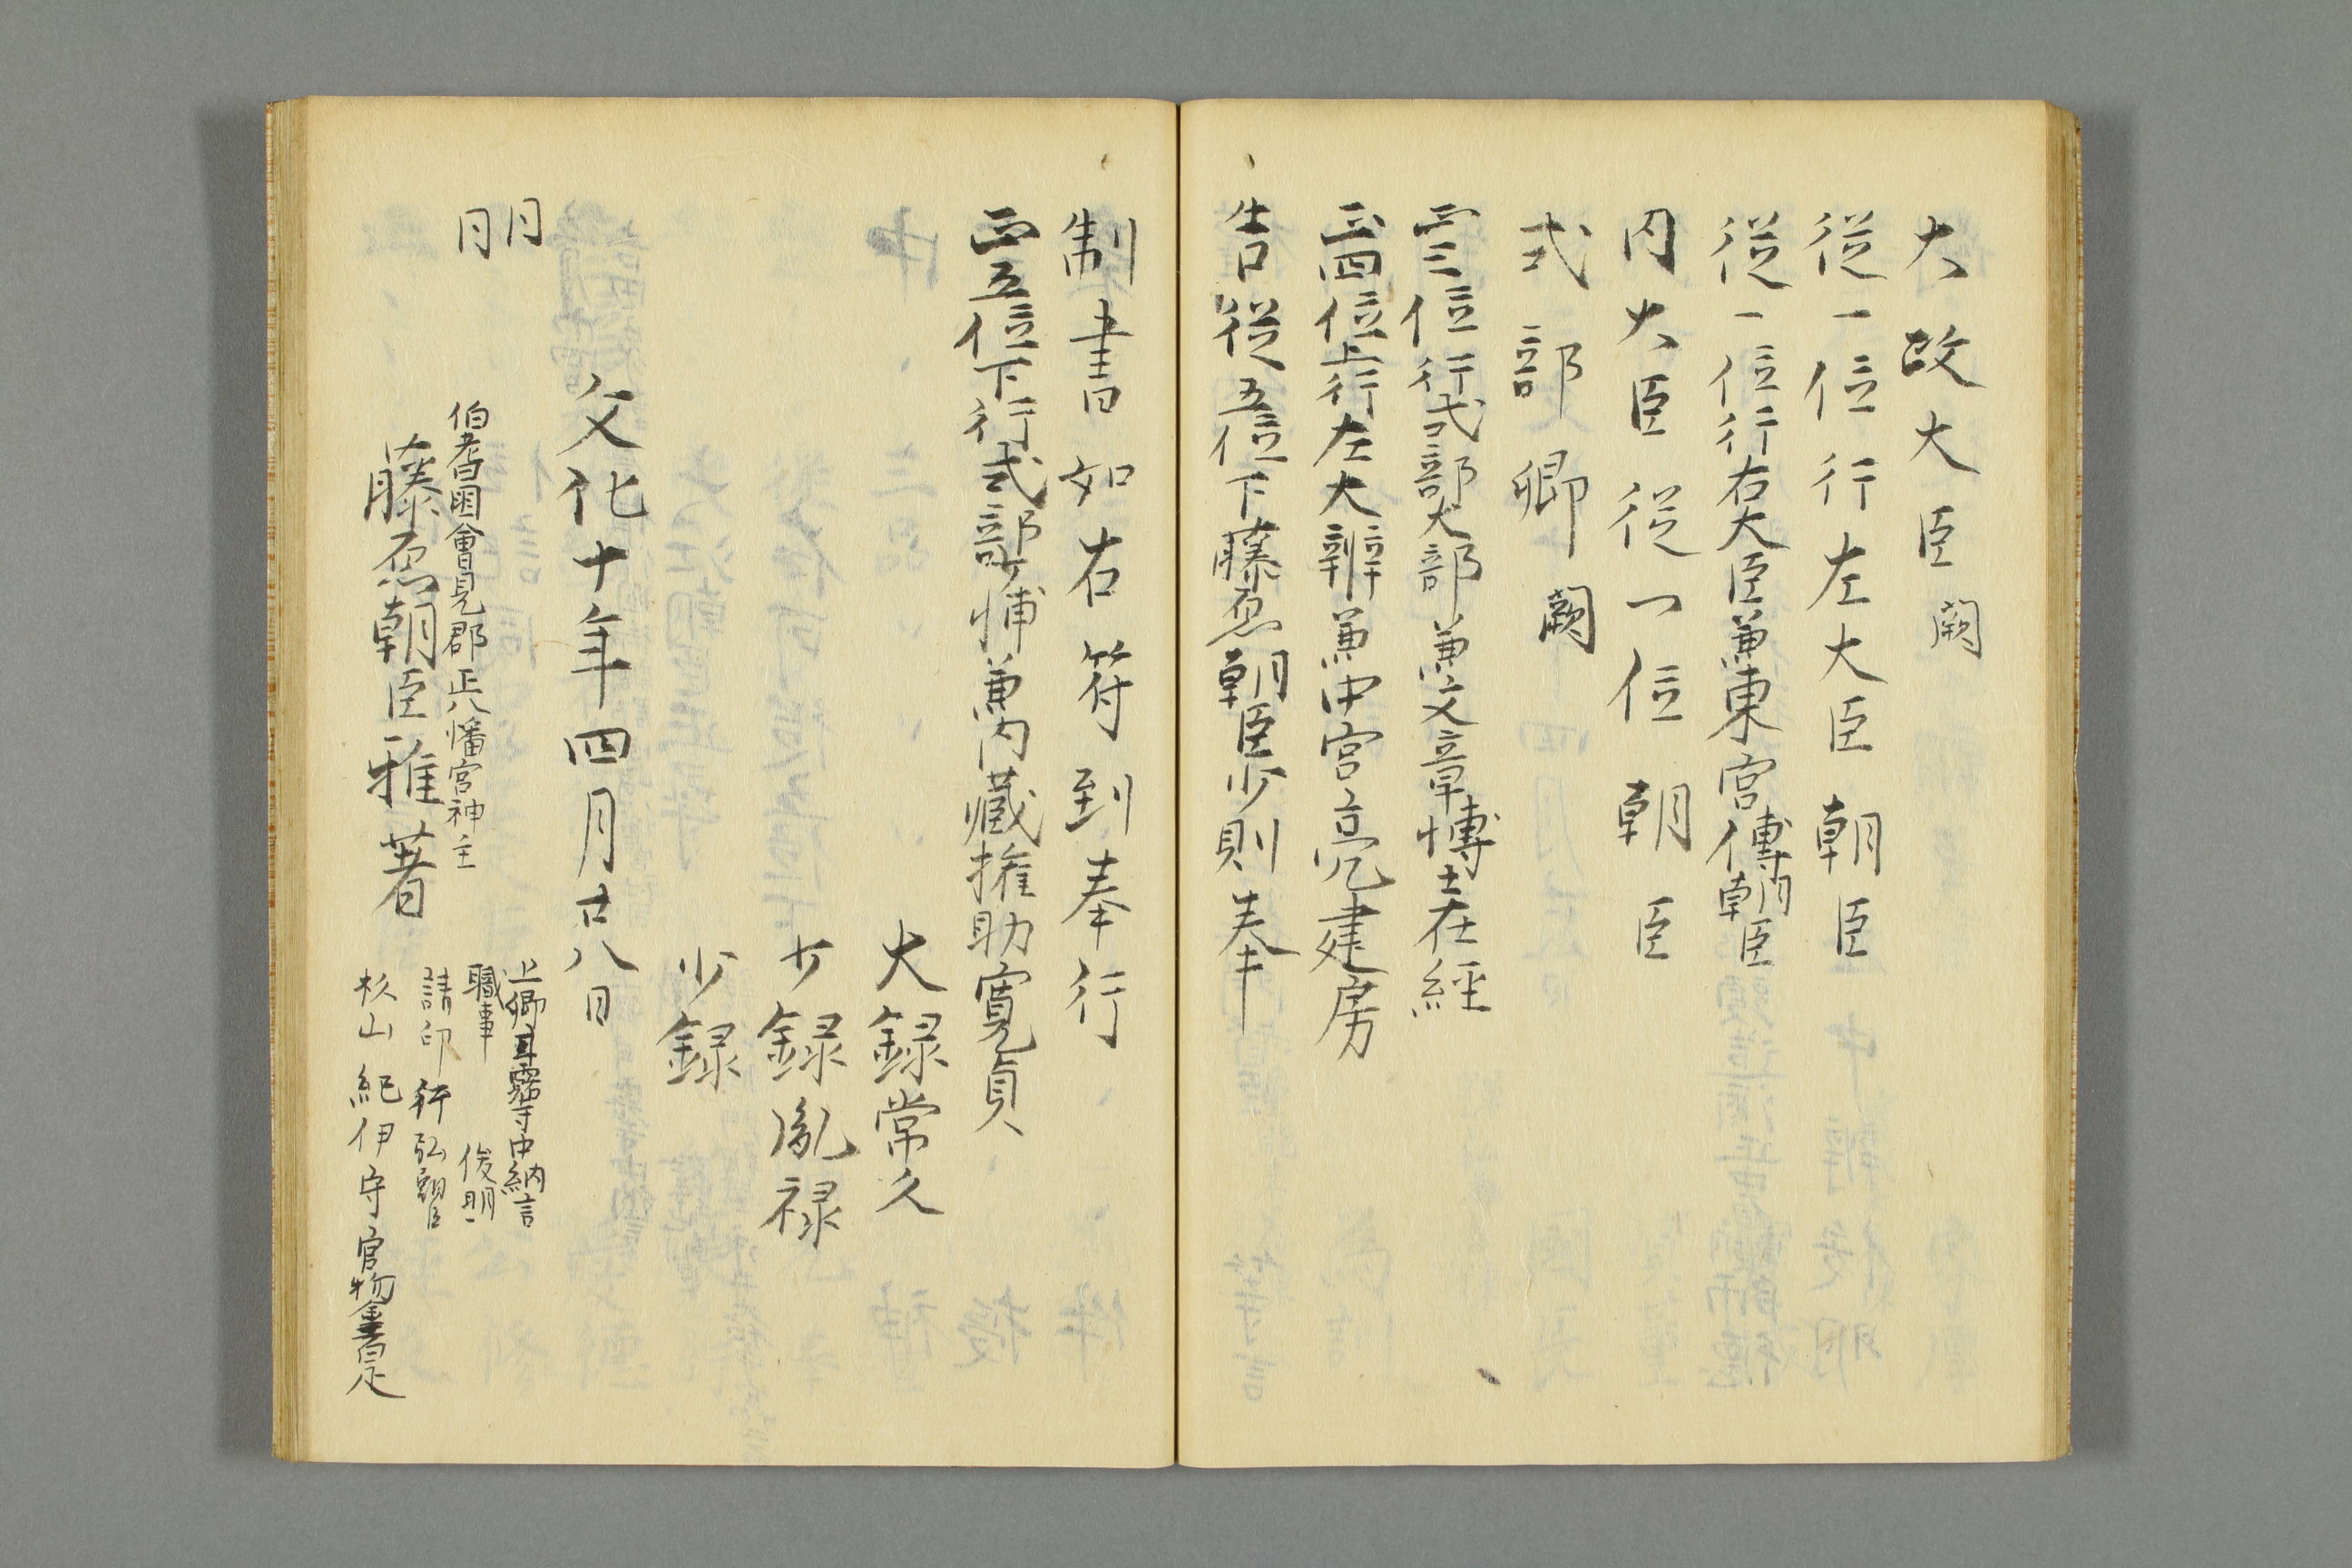 大政大臣 闕
従一位行左大臣朝臣
従一位行右大臣兼東宮傳朝臣
内大臣従一位朝臣
式部卿 闕
正三位行式部大輔兼文章博士在經
正四位上行左大辨兼中宮亮建房
告従五位下藤原朝臣少則奉
制書如右符到奉行
正五位下行式部少輔兼内藏権助寛貞
大録常久
少録胤禄
少録
文化十年四月廿八日
同日
伯耆國會見郡正八幡宮神主
藤原朝臣雅著
上卿 中納言
職事 俊明
請印 弘朝臣
杉山紀伊守 官物